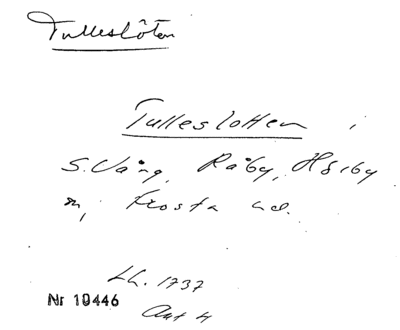 Tulleslôten
Tulleslotten i
S. Vång, Råby, Hörby
sn, Frosta hd.
Lh. 1737
Nr 10446
Akt 4